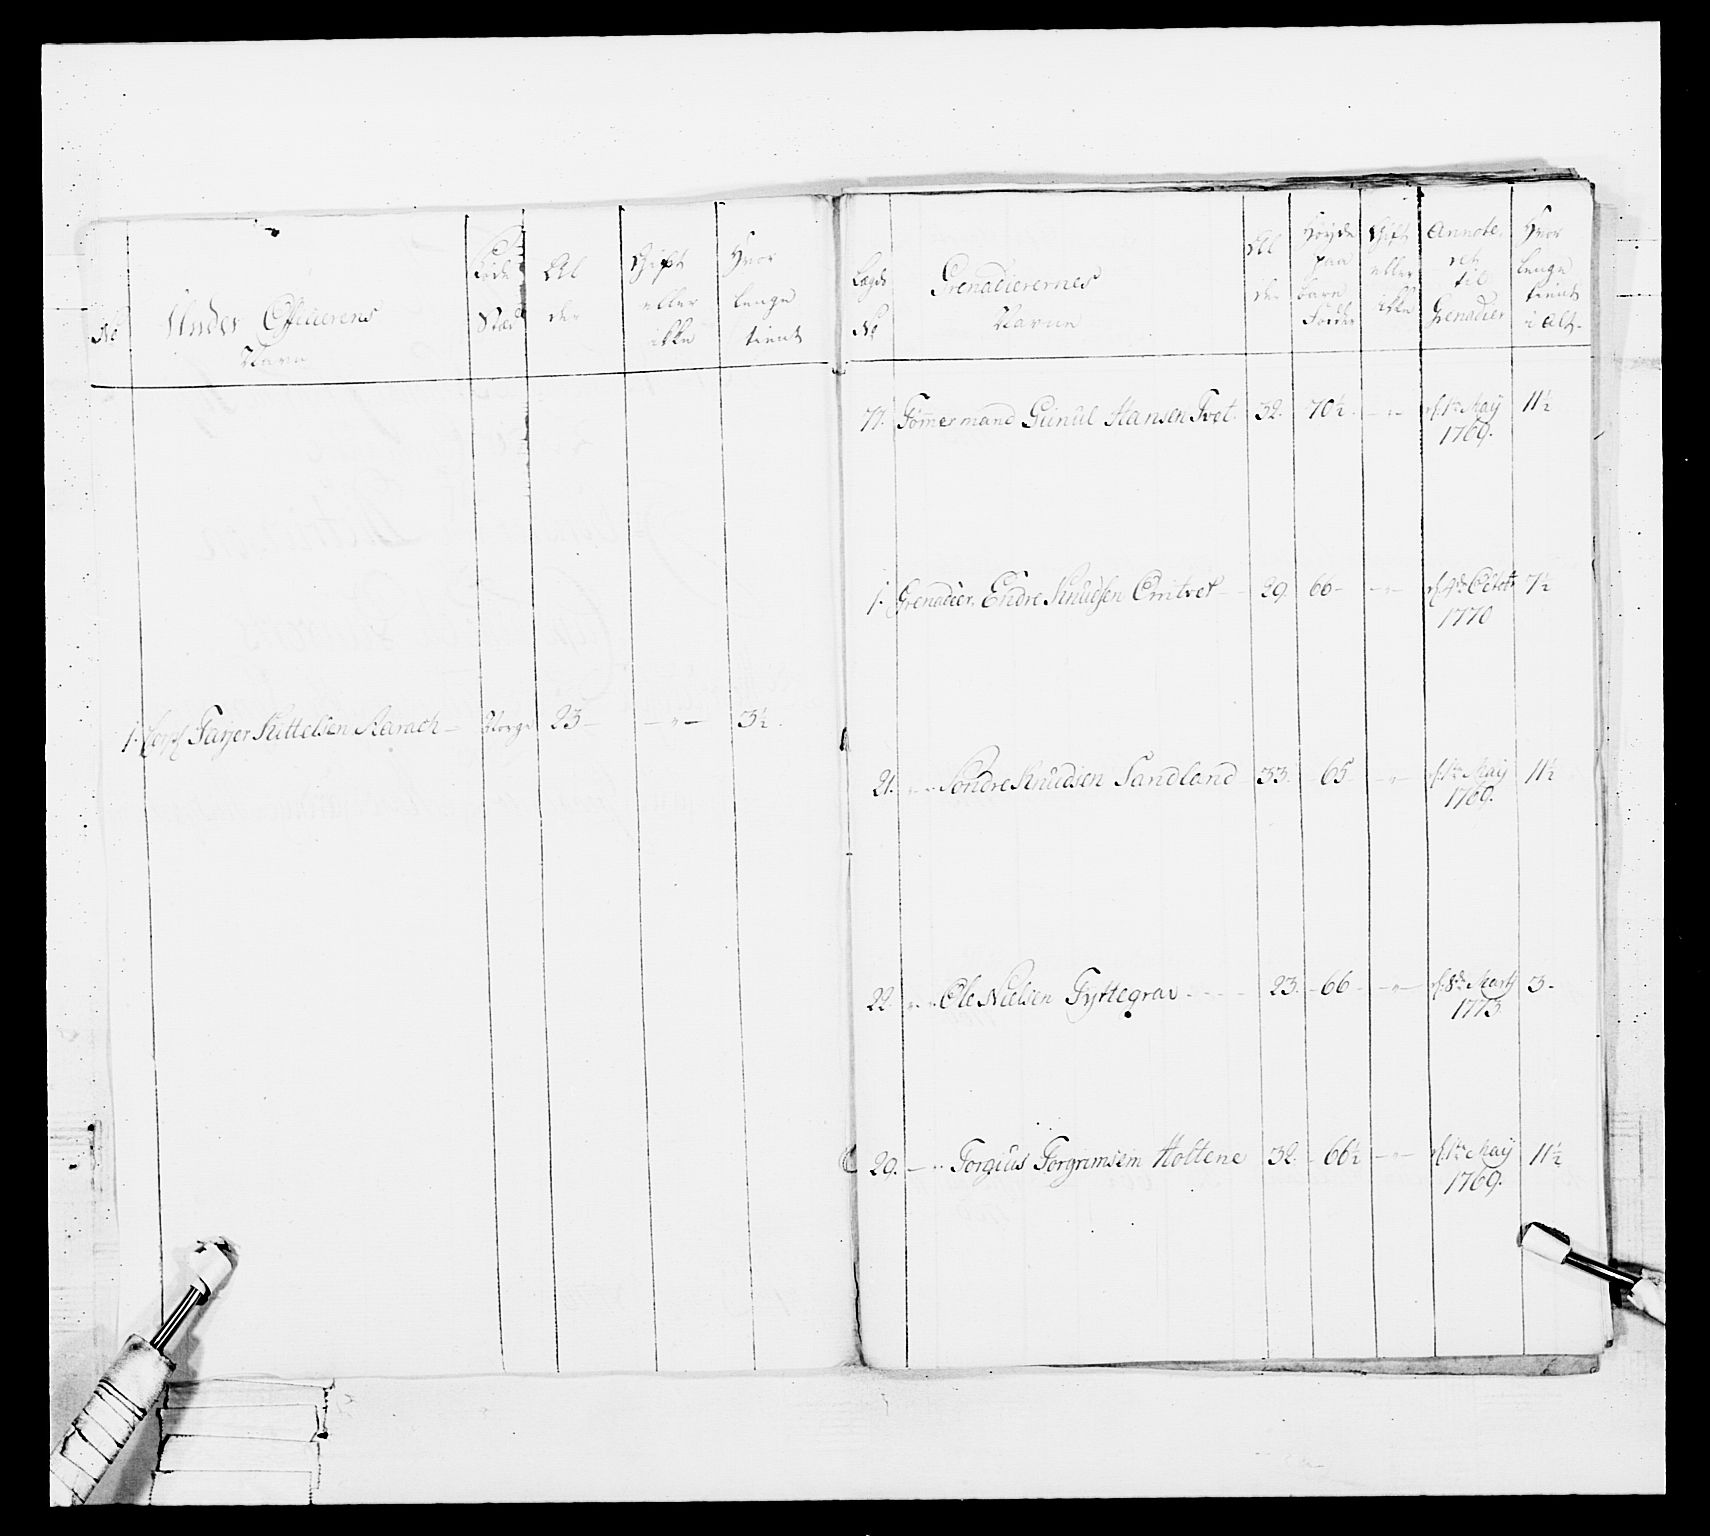 No
Under Officierens
Navn
Føde
Stæd
Al
der
Gift
eller
ikke
Hvor
lenge
tient
1. Corpl Tarjer Kittelsen Aarach — Norge 23 — — " — 3½.
Lægds
No
Grenadierernes
Navne
Al
der
Høyde
paa
bare
Fødder
Gift
eller
ikke
Annote
ret
til
Grenadier
Hvor
lenge
tient
i alt.
77. Tömermand Gunul Hansen Tvet. 32. 70½. — " — d. 1ste Maij 11½
1769.
1. Grenadeer Endre Knudsen Omtvet — 29 66 — — " — d. 4de Octobr 7½
1770
21. " " Sondre Knudsen Sandland 33. 65 — " — d. 1ste Maij 11½
1769.
22. " " Ole Nielsen Tyttegrav - - - - 23. 66 — " — d. 8de Marty 3 -
1773.
29. — " Torgius Torgrimsen Holtene 32. 66½ — " — d. 1ste Maij 11½
1769.